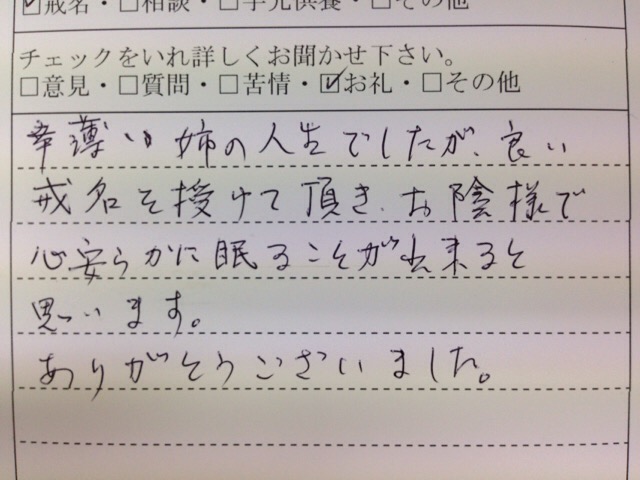 ☑戒名・□相談・□手元供養・□その他
チェックをいれ詳しくお聞かせ下さい。
□意見・□質問・□苦情・☑お礼・□その他
幸薄い姉の人生でしたが、良い
戒名を授けて頂き、お陰様で
心安らかに眠ることが出来ると
思います。
ありがとうございました。